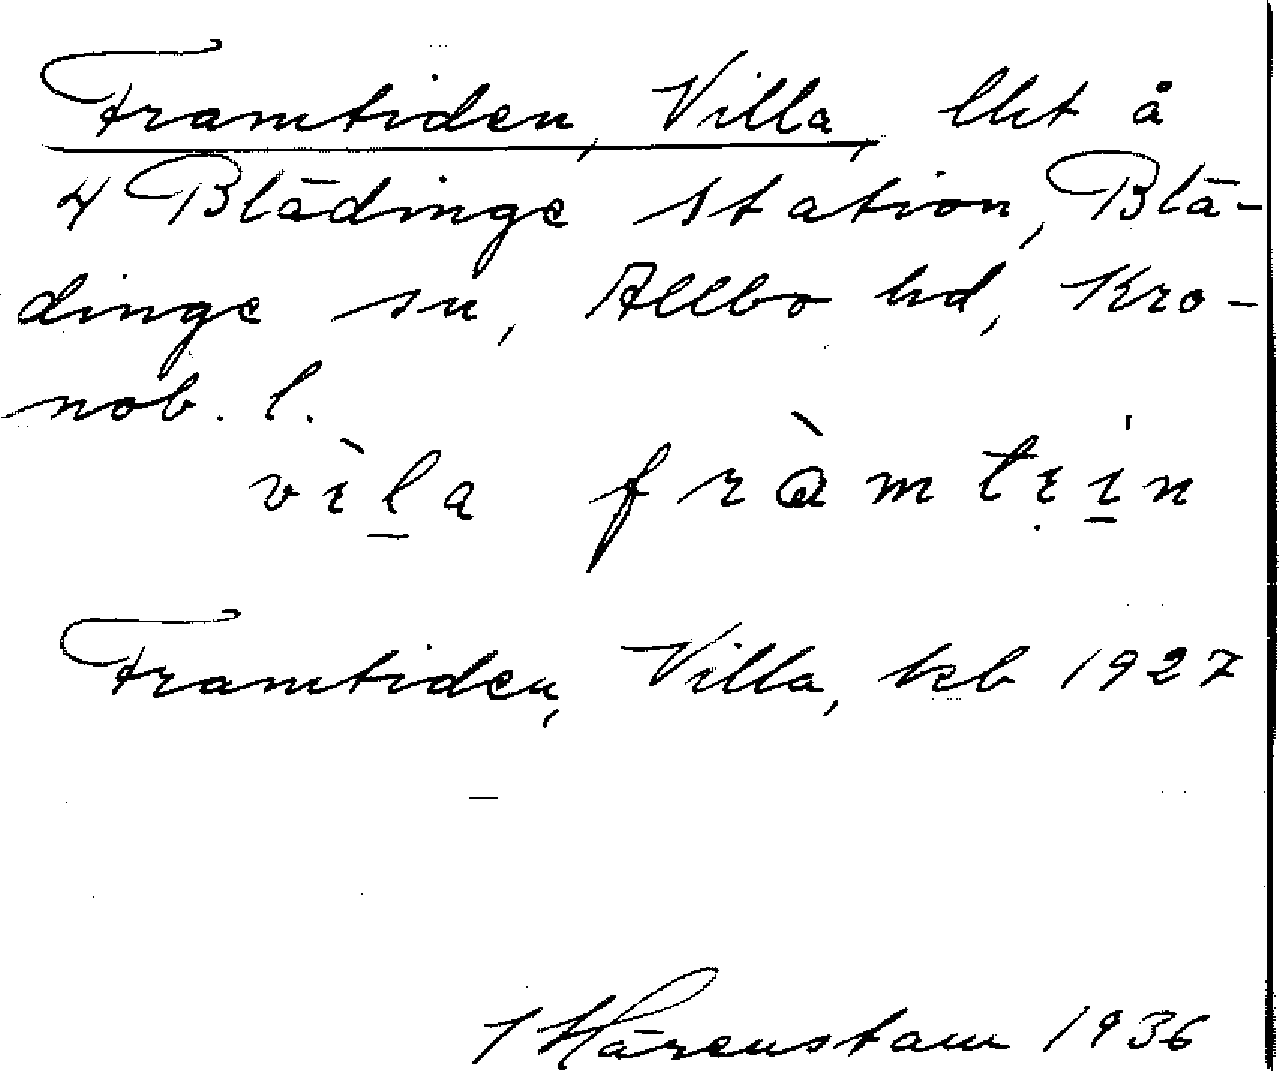 Framtiden, Villa, lht å
4 Blädinge station, Blä-
dinge sn, Allbo hd, Kro-
nob. l.
vìla fràmtiin
Framtiden, Villa, kb 1927
T Härenstam 1936